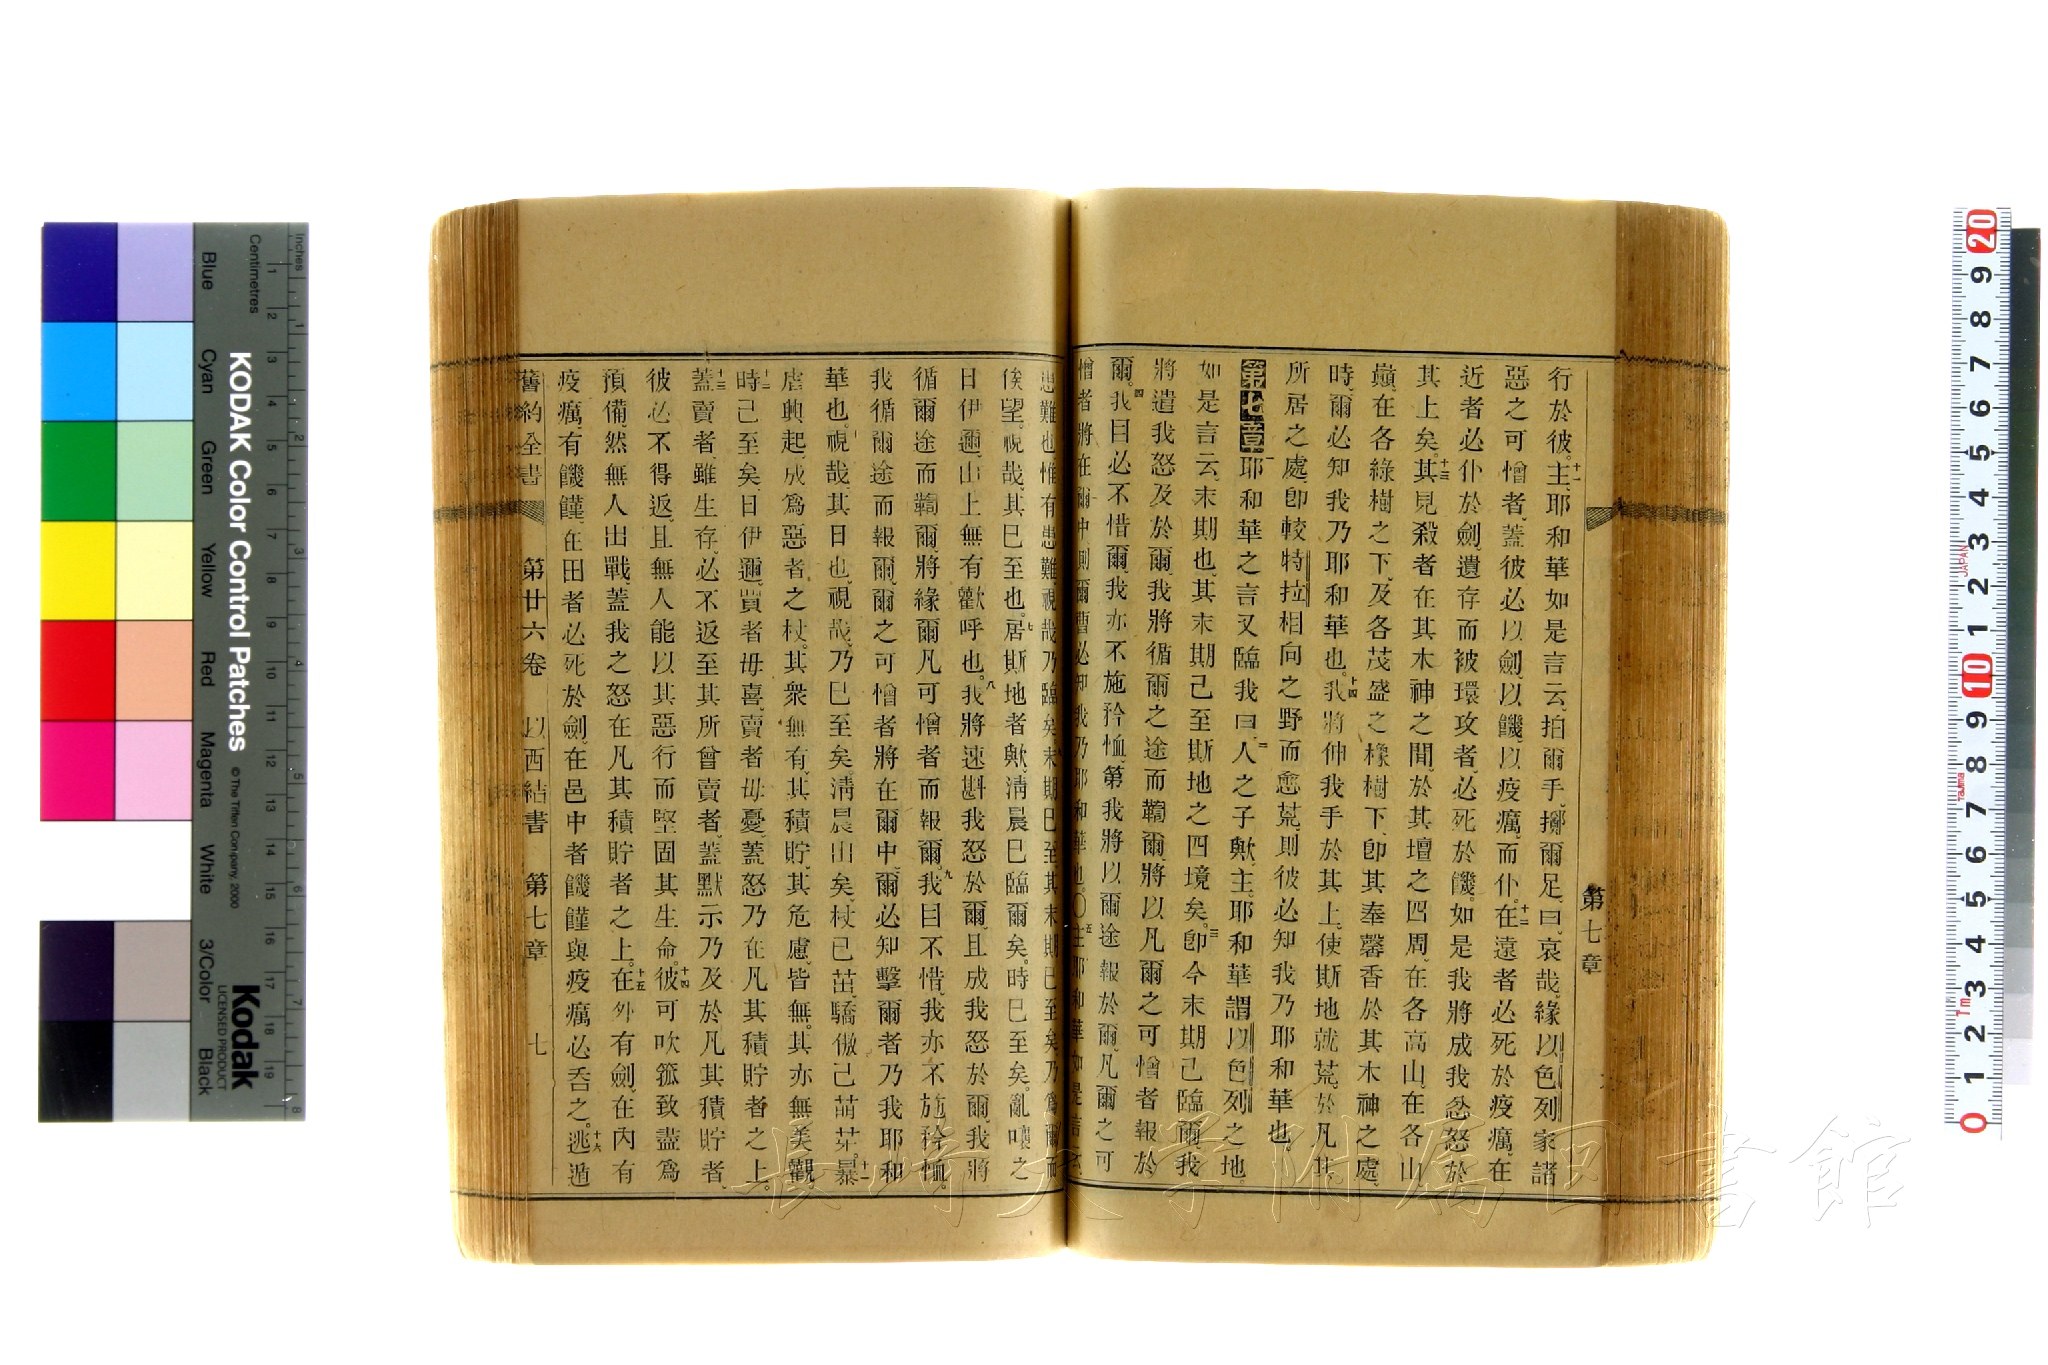 第七章
行於彼。十一主耶和華如是言云、拍爾手、擲爾足、曰、哀哉、緣以色列家諸
惡之可憎者、蓋彼必以劍、以饑、以疫癘、而仆。十二在遠者必死於疫癘、在
近者必仆於劍、遺存而被環攻者、必死於饑。如是我將成我忿怒於
其上矣。十三其見殺者在其木神之間、於其壇之四周、在各高山、在各山
巔、在各綠樹之下、及各茂盛之橡樹下、卽其奉馨香於其木神之處、
時、爾必知我乃耶和華也。十四我將伸我手於其上、使斯地就荒。於凡其
所居之處、卽較特拉相向之野而愈荒、則彼必知我乃耶和華也。
第七章一耶和華之言又臨我曰、二人之子歟、主耶和華謂以色列之地
如是言云、末期也、其末期已至斯地之四境矣。三卽今末期已臨爾、我
將遣我怒及於爾、我將循爾之途而鞫爾、將以凡爾之可憎者報於
爾。四我目必不惜爾、我亦不施矜恤、第我將以爾途報於爾、凡爾之可
憎者將在爾中、則爾曹必知我乃耶和華也。〇五主耶和華如是言云、
患難也、惟有患難、視哉、乃臨矣、末期已至、其末期已至矣、乃爲爾而
俟望。視哉、其已至也。七居斯地者歟、清晨已臨爾矣。時已至矣。亂嚷之
日伊邇、山上無有歡呼也。八我將速斟我怒於爾、且成我怒於爾、我將
循爾途而鞫爾、將緣爾凡可憎者而報爾。九我目不惜、我亦不施矜恤、
我循爾途而報爾、爾之可憎者將在爾中、爾必知擊爾者乃我耶和
華也。視哉、其日也、視哉、乃已至矣、清晨出矣、杖已茁、驕傲已萌芽。十一暴
虐興起、成爲惡者之杖。其衆無有、其積貯、其危慮、皆無。其亦無美觀。
十二時已至矣、日伊邇、買者毋喜、賣者毋憂、蓋怒乃在凡其積貯者之上。
十三蓋賣者、雖生存、必不返至其所曾賣者、蓋默示乃及於凡其積貯者、
彼必不得返、且無人能以其惡行而堅固其生命。十四彼可吹箛致盡爲
預備、然無人出戰、蓋我之怒在凡其積貯者之上。十五在外有劍、在內有
疫癘、有饑饉、在田者必死於劍、在邑中者饑饉與疫癘必呑之。十六逃遁
舊約全書 第廿六卷 以西結書 第七章 七
長崎大学附属図書館
Inches
Centimetres
KODAK Color Control Patches
© The Tiffen Company, 2000
Blue Cyan Green Yellow Red Magenta White 3/Color Black
Kodak
LICENSED PRODUCT
JAPAN
Tajima